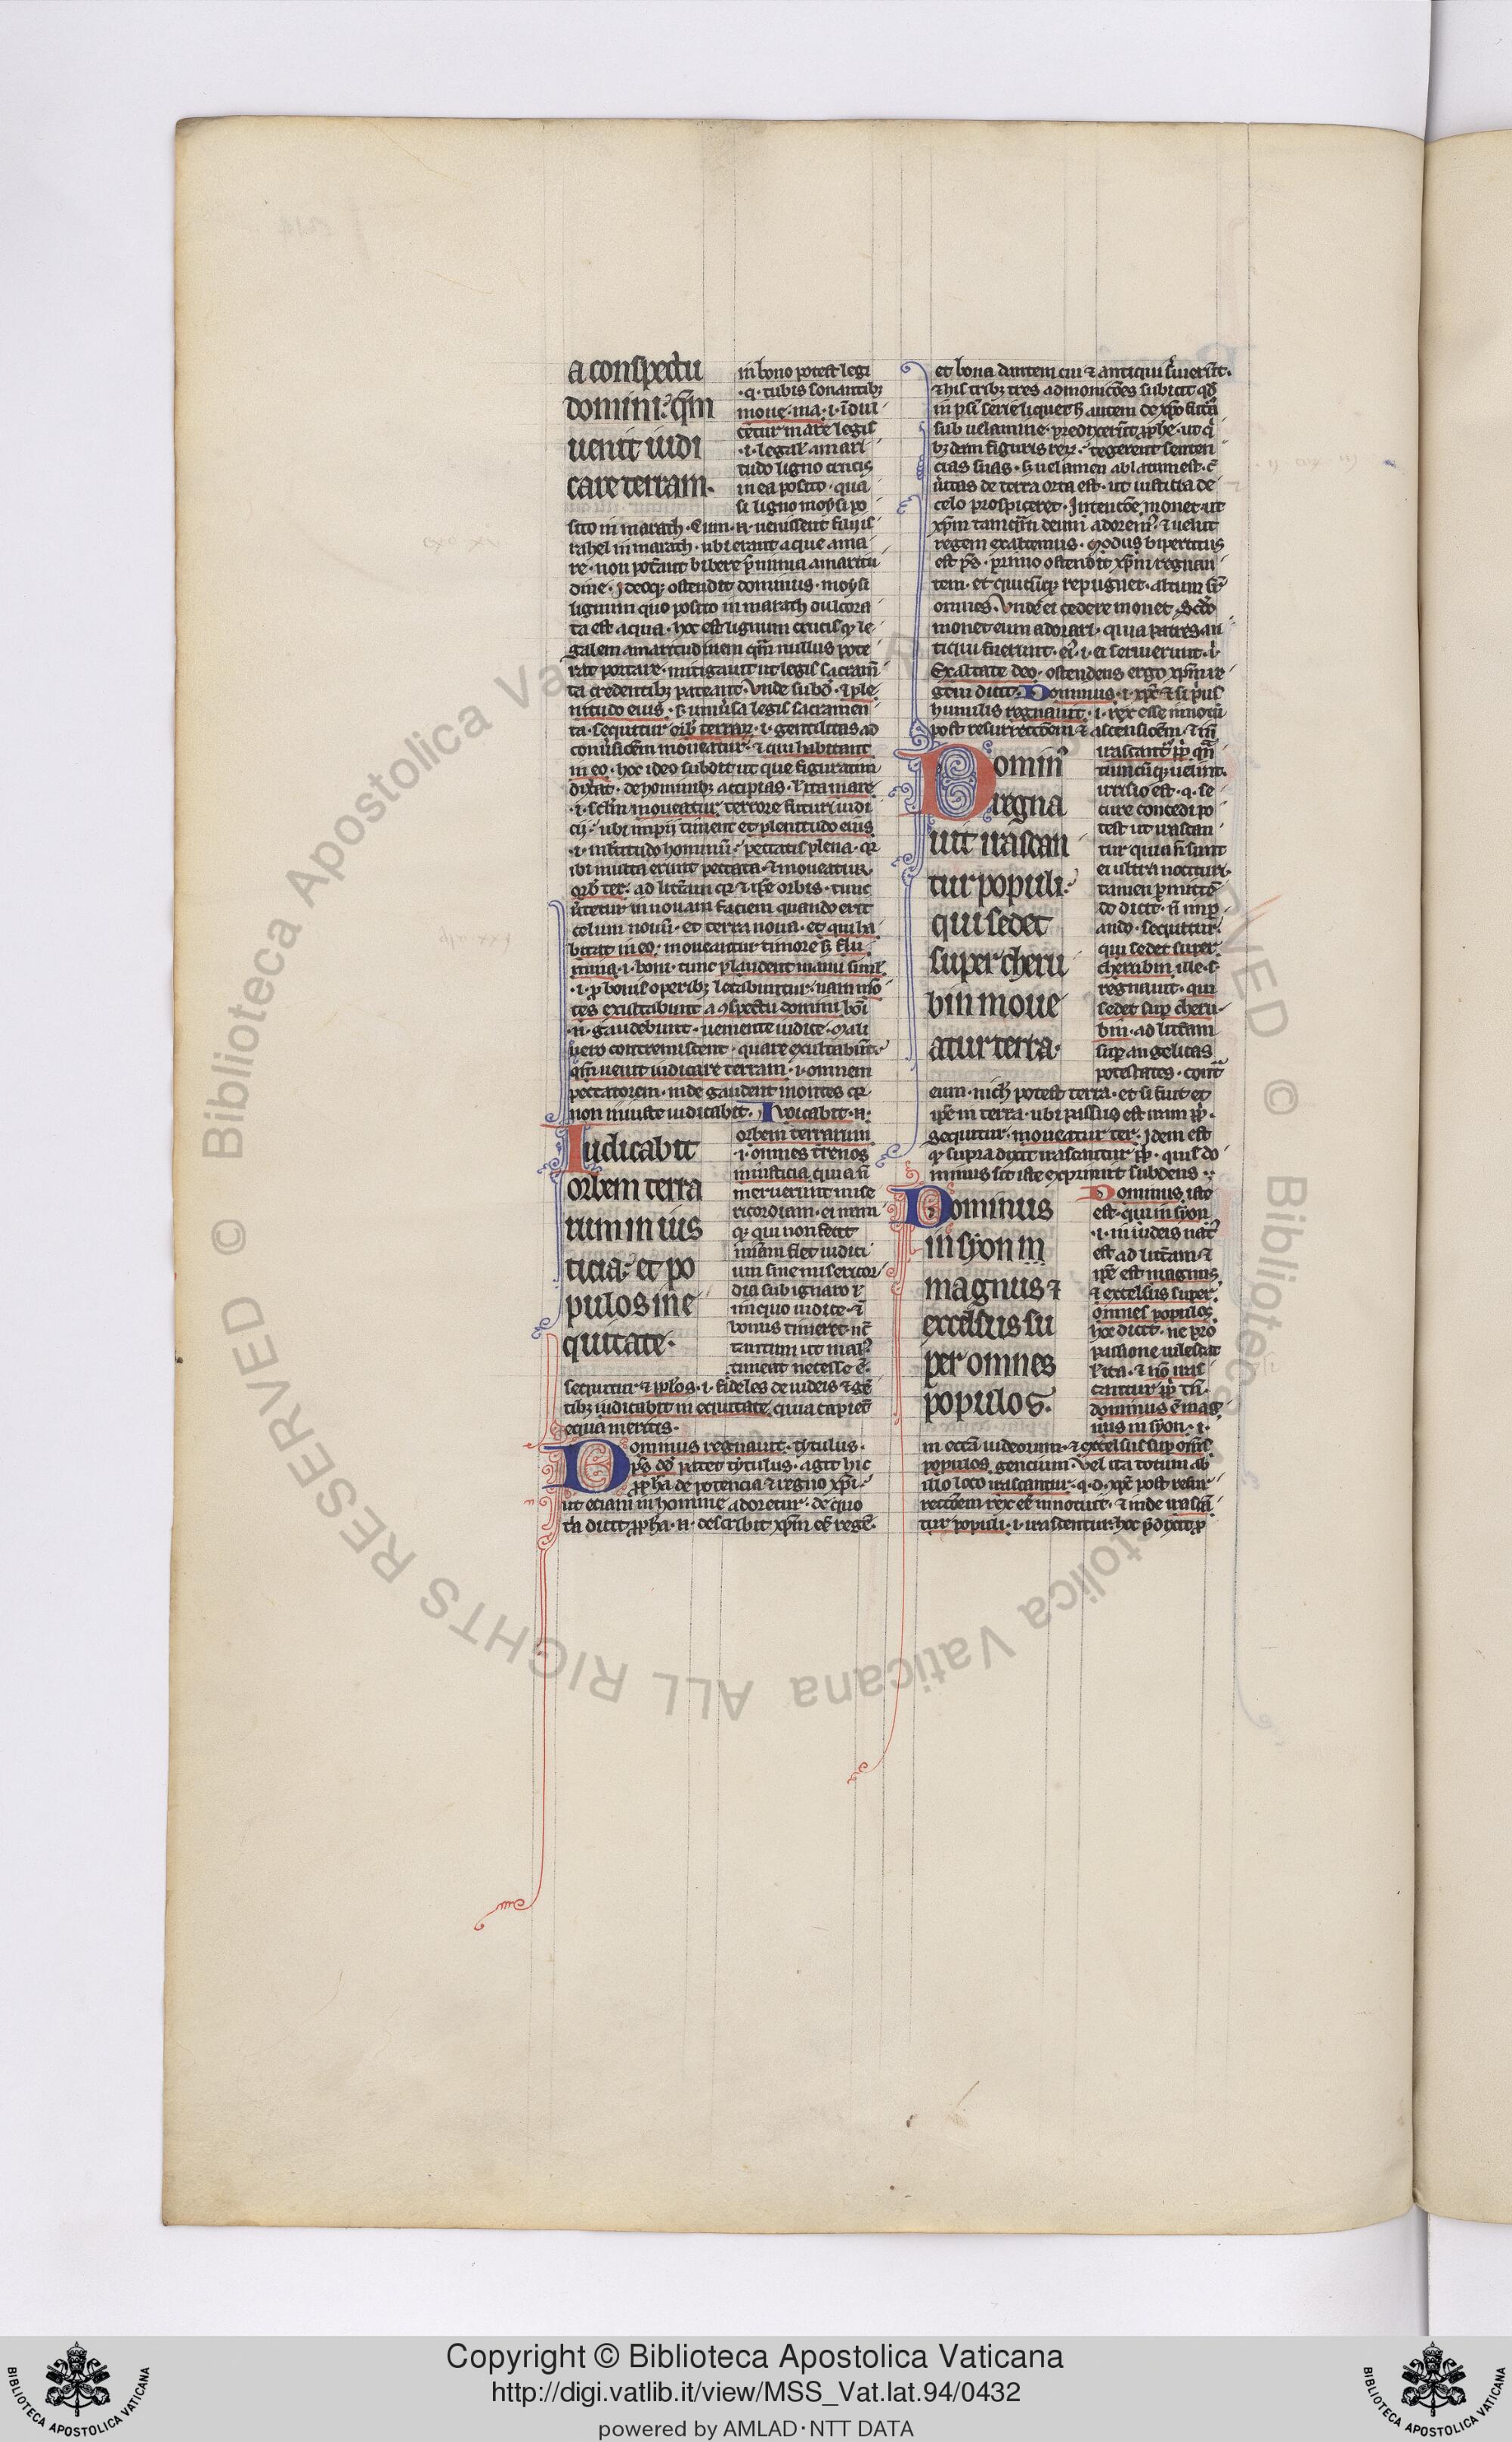 a conspectu
domini: qm̄
uenit iudi
care terram·
in bono potest legi
·q· tubis sonantibꝫ
moue· ma· i· īdui
cētur mare legis
·i· legał amari
tudo ligno crucis
in ea posito· qua
si ligno moysi po
sito in marach· Cum· n· uenissent filij is
rahel in marach· ubi erant aque ama
re· non potāt bibere p̄ nimia amaritu
dine· Ideoqꝫ ostendit dominus· moysi
lignum quo posito in marach dulcora
ta est aqua· hoc est lignum crucis qꝫ le
galem amaritudinem qm̄ nullus pote
rat portare· mitigauit ut legis sacram̄
ta credentibꝫ pateant· Vnde subd̄· ⁊ ple
nitudo eius· s· uniu̓sa legis sacramen
ta· sequitur orb̓ terraꝝ· i· gentilitas ad
conu̓sionē moueatur· ⁊ qui habitant
in eo· hoc ideo subdit ut que figuratim
dix̓at· de hominibꝫ accipias· ł ita mare
·i· sclm̄ moueatur terrore futuri iudi
cij· ubi impij timent et plenitudo eius
·i· m̄titudo hominū· peccatis plena· qꝛ
ibi multa erunt peccata· ⁊ moueatur
orb̓ ter· ad litt̄am qꝛ ⁊ ip̄e orbis· tunc
u̓tetur in nouam faciem quando erit
celum nouū· et terra noua· et qui ha
bitat in eo· moueantur timore ꝫ flu
mina· i· boni· tunc plaudent manu simł
·i· ꝓ bonis operibꝫ letabuntur· nam mō
tes exultabunt a ꝯspectu domini boī
·n· gaudebunt· ueniente iudice· Mali
uero contremiscent· quare exultabūt
qm̄ uenit iudicare terram· i· omnem
peccatorem· inde gaudent montes qꝛ
non iniuste iudicabit· Iudicabit· n·
Iudicabit
orbem terra
rum in ius
ticia: et po
pulos in e
quitate·
orbem terrarum
·i· omnes t̓renos
in iusticia quia n̄
meruerunt mise
ricordiam· ei nam
qꝫ qui non fecit
miam fiet iudici
um sine misericor
dia sub ignaro ł
iniquo iudice· ⁊
bonus timeret nc̄
tantum ut malꝰ
timeat necesse ē·
sequitur ⁊ pp̄los· i· fideles de iudeis ⁊ gē
tibꝫ iudicabit in equitate quia capiēt
equa meritis·
Dominus regnauit· tytulus·
ps̄ dd̓ patet tytulus· agit hic
ꝓph̄a de potencia ⁊ regno xp̄i·
ut eciam in homine adoretur· de quo
ita dicit ꝓph̄a· n· describit xp̄m eē regē·
et bona dantem cui ⁊ antiqui s̓uierūt·
⁊ his tribꝫ tres admonicōes subicit qd̓
in ps̄ serie liquet· h̓ autem de xp̄o sicut
sub uelamine· predixerūt ꝓphe· ut q̓
bꝫdam figuris reꝝ· tegerent senten
cias suas· s̓ uelamen ablatum est· ⁊
u̓itas de terra orta est· ut iusticia de
celo prospiceret· Intencōe monet· ut
xp̄m tamqm̄ deum adoremꝰ· ⁊ uelut
regem exaltemus· Modus bipertitus
est ps̄· primo ostendit xp̄m regnan
tem· et quicūqꝫ repugnet· altum sup̄
omnes· Vnde ei cedere monet· Sc̄do
monet eum adorari· quia patres an
tiqui fuerunt· ei̓· i· ei seruierunt· ił
Exaltate deo· ostendens ergo xp̄m re
gem dicit· Dominus· i· xp̄c ⁊ si pius
humilis regnauit· i· rex esse innotuī
post resurrectōem ⁊ ascensiōem· ⁊ in̄
Dominꝰ
regna
uit irascan
tur populi·
qui sedet
super cheru
bin moue
atur terra·
irascant̓ pp̄ qn̄
tumcūqꝫ uelint·
irrisio est· q· se
cure concedi po
test ut irascan
tur quia n̄ sunt
ei ultra nocituri·
tamen ꝑmittē
do dicit· n̄ imꝑ
ando· sequitur·
qui sedet super
cherubin ille· s·
regnauit· qui
sedet sup̄ cheru
bin· ad litt̄am
sup̄ angelicas
potestates· cont̓
eum· nich̓ potest terra· et si fuit et
ip̄e in terra· ubi passus est nam pp̄·
sequitur· moueatur ter· Idem est
qꝫ supra dixit irascantur pp̄· quis do
minus sit iste exprimit subdens·:
Dominus
in syon
magnus ⁊
excelsus su
per omnes
populos·
Dominus iste
est· qui in syon
·i· in iudeis natꝰ
est ad litt̄am· ⁊
ip̄e est magnus
⁊ excelsus super
omnes populos
hoc dicit· ne pro
passione uilescat
ł ita· ⁊ nō iras
cantur pp̄ tn̄·
dominus ē mag
nus in syon· i·
in eccl̄a iudeorum· ⁊ excelsus sup̄ om̄s
populos gencium· Vel ita totum ab
illo loco irascantur· q· d· xp̄c post resur
rectōem rex eē innotuit· ⁊ inde irascā
tur populi· i· irascentur hoc p̄dixit ꝓ
Copyright © Biblioteca Apostolica Vaticana
http://digi.vatlib.it/view/MSS_Vat.lat.94/0432
powered by AMLAD·NTT DATA
BIBLIOTECA APOSTOLICA VATICANA
BIBLIOTECA APOSTOLICA VATICANA
© Biblioteca Apostolica Vaticana ALL RIGHTS RESERVED